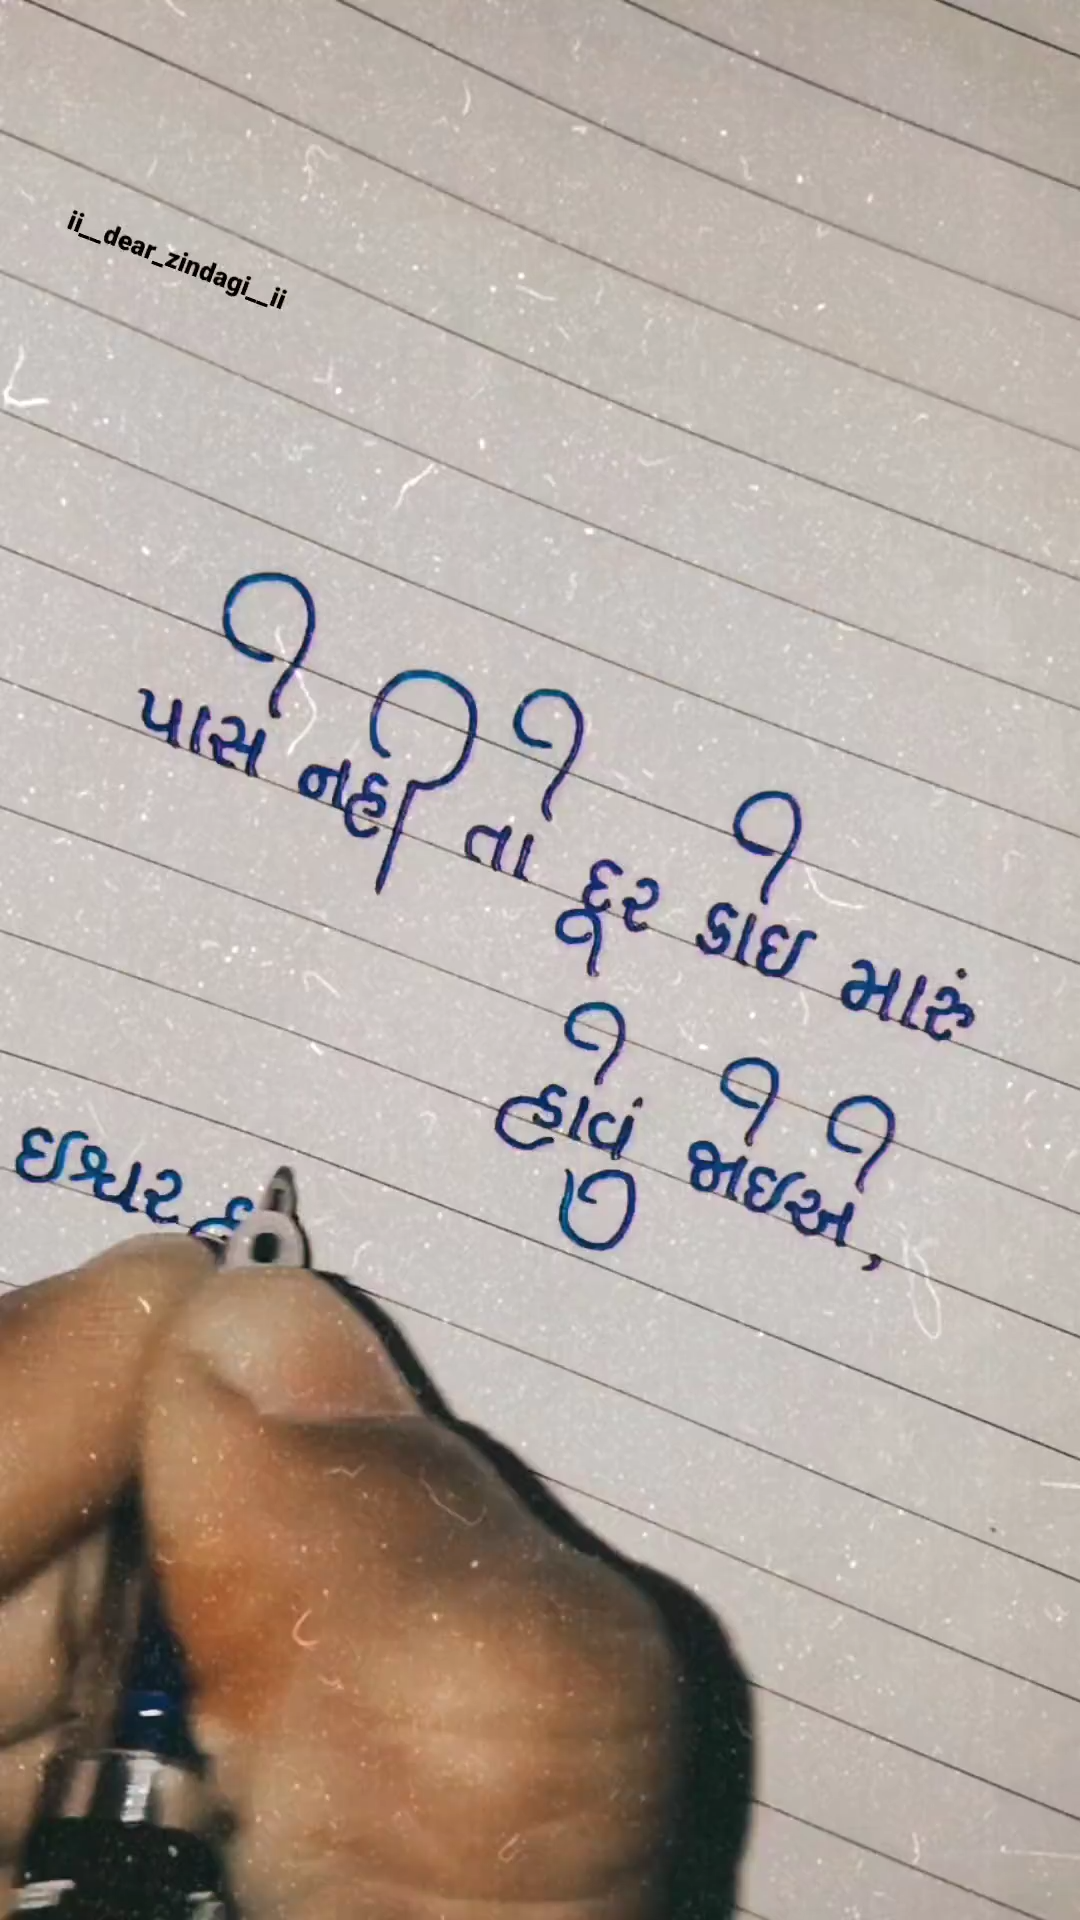 ii__dear_zindagi__ii
પાસે નહીં તો દૂર કોઈ મારું
હોવું જોઈએ,
ઈશ્વર હ